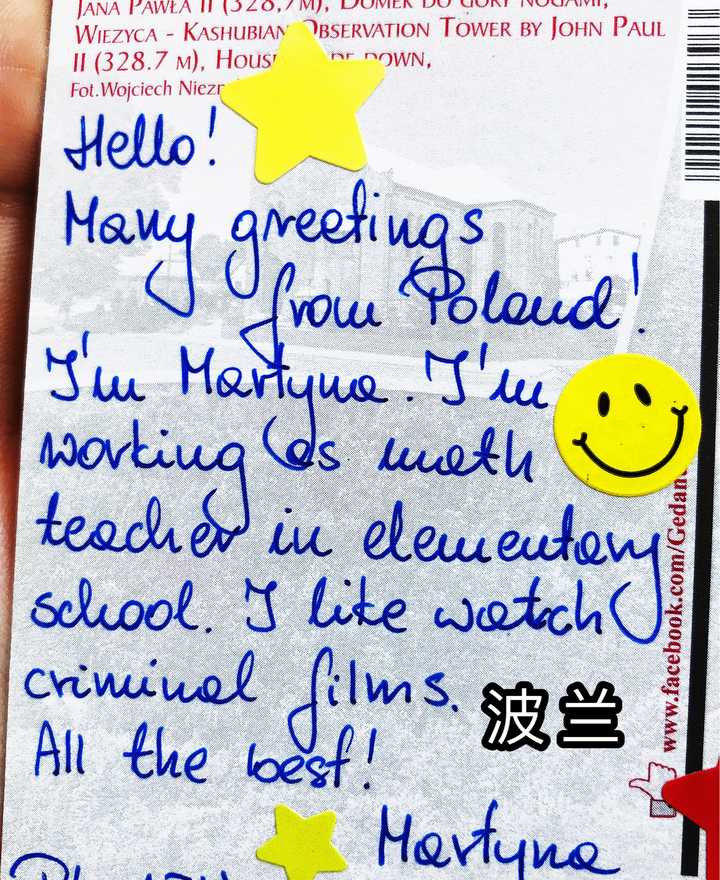 JANA PAWŁA II (328,7M), DOMEK DO GÓRY NOGAMI,
WIEZYCA - KASHUBIAN OBSERVATION TOWER BY JOHN PAUL
II (328.7 M), DOWN,
Fot.Wojciech
Hello!
Many greetings
from Poland!
I'm Martyna. I'm
working as math
teacher in elementary
school. I like watch
criminal films.
波兰
All the best!
Martyna
www.facebook.com/Gedan